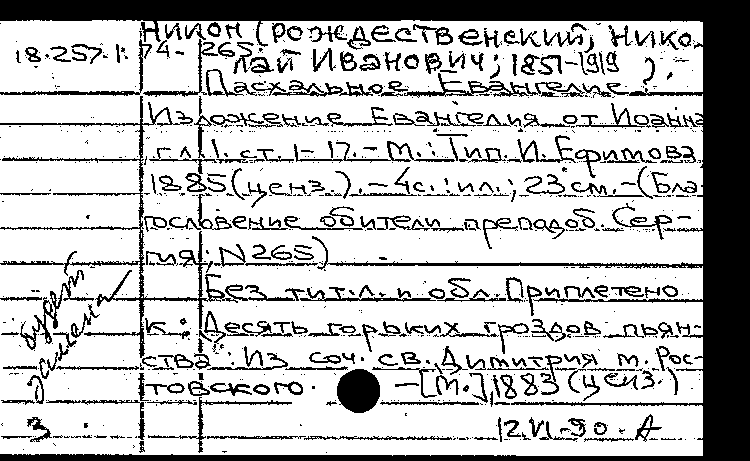 Никон (Рождественский, Нико-
18.257.1: 74-265:
лай Иванович; 1851-1919).-
Пасхальное Евангелие:
Изложение Евангелия от Иоанна
гл.1. ст. 1-17.-М.: Тип. И. Ефимова,
1885(ценз.).-4с.:ил.; 23см.-(Бла-
гословение обители преподоб. Сер-
гия; N265)
Без тит.л. и обл. Приплетено
к: Десять горьких гроздов пьян-
ства: Из соч. св. Димитрия м. Рос-
товского. -[М.], 1883 (ценз.)
будет
замена
3.
12.VI-90. А